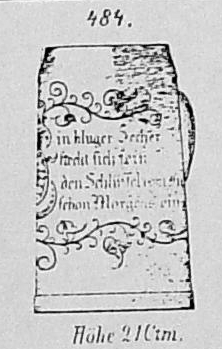 484.
in kluger Zecher
steckt sich fein
den Schlüssel
schon Morgens ein
Höhe 21 Ctm.